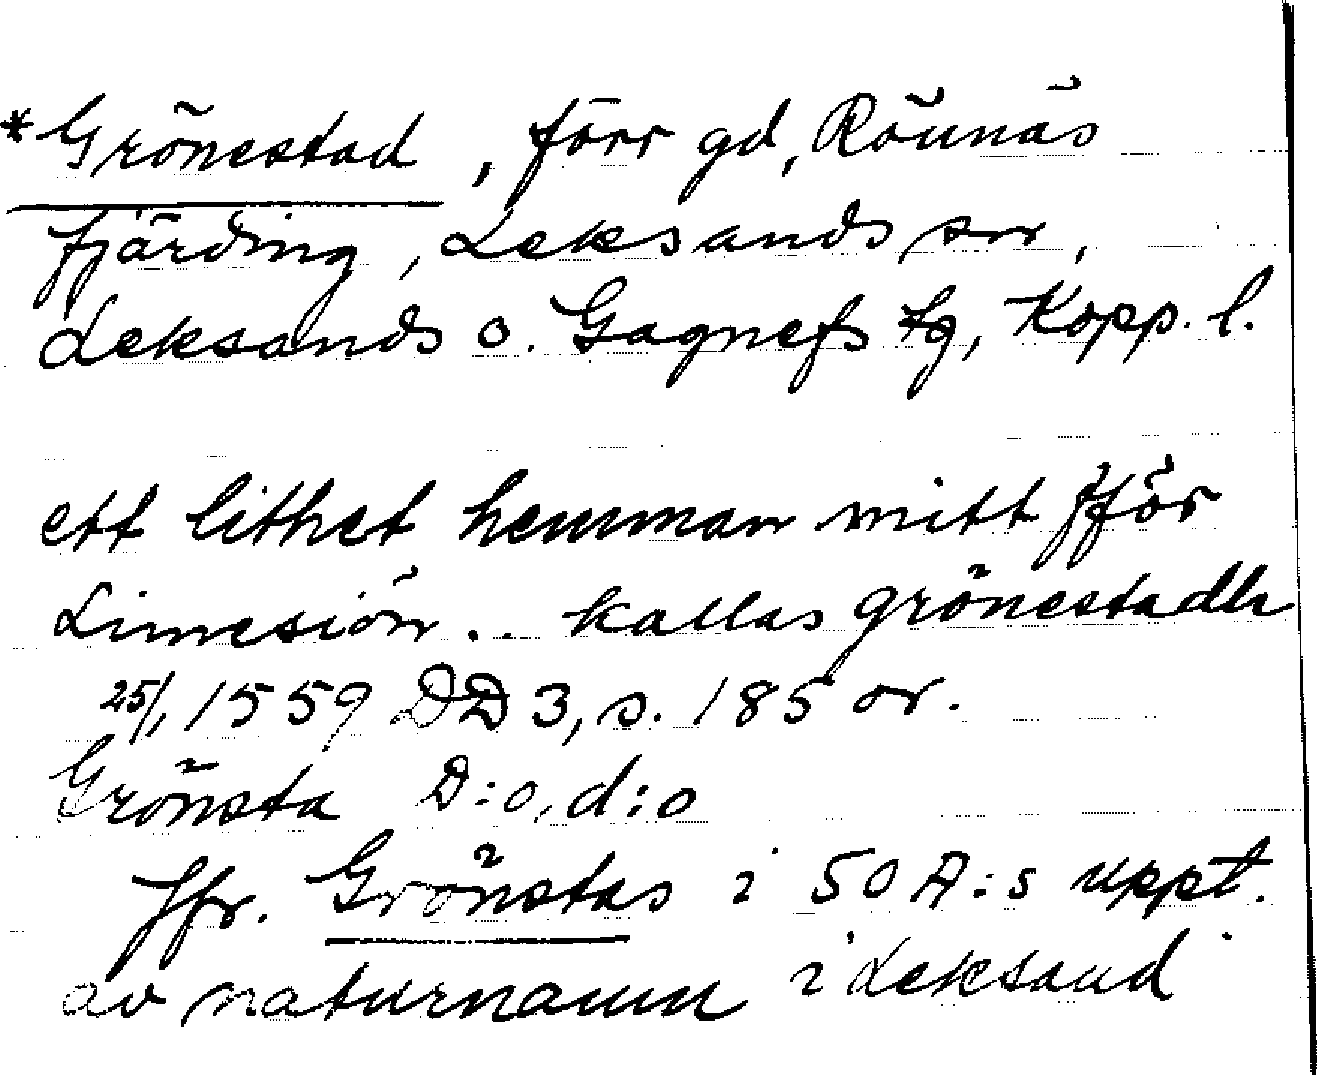 *Grönestad, förr gd, Röunäs
fjärding, Leksands sn,
Leksands o. Gagnefs tg, Kopp. l.
ett lithet hemman mitt fför
Limesiön .. kallas grönestadh
25/1 1559 DD 3, s. 185 or.
Grönsta D:o, d:o
Jfr. Grönstas i SOA:s uppt.
av naturnamn i Leksand